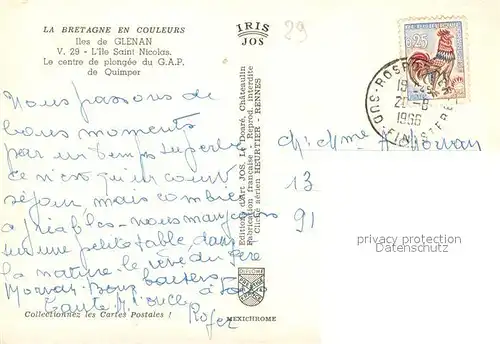 LA BRETAGNE EN COULEURS
Iles de GLENAN
V. 29 - L'Ile Saint Nicolas.
Le centre de plongée du G.A.P.
de Quimper
IRIS
JOS
29
0,25
ROSP
1966
FINISTERE
Nous passons de
bons moments
par un temps superbe
ce n'est qu'un court
séjour mais combien
agréable - nous mangeons
sur une petite table dans
la nature - le rêve du Père
Morvan. Bons baisers à tous
Tante M. oncle
Roger
Editions d'art JOS, Le Doaré, Châteaulin
Fabrication française - Reprod. interdite
Cliché aérien HEURTIER - RENNES
Mr Mme Morvan
13
91
privacy protection
watermark
Collectionnez les Cartes Postales !
MEXICHROME